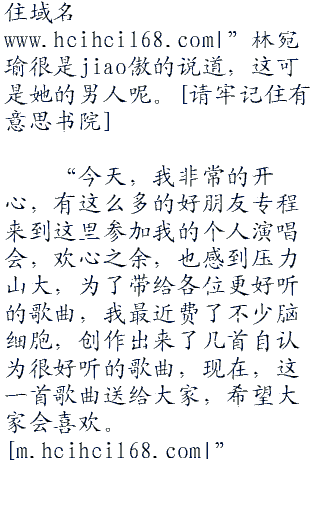 住域名
www.hcihci168.com|”林宛
瑜很是jiao傲的说道，这可
是她的男人呢。[请牢记住有
意思书院]
“今天，我非常的开
心，有这么多的好朋友专程
来到这里参加我的个人演唱
会，欢心之余，也感到压力
山大，为了带给各位更好听
的歌曲，我最近费了不少脑
细胞，创作出来了几首自认
为很好听的歌曲，现在，这
一首歌曲送给大家，希望大
家会喜欢。
[m.hcihci168.com|”